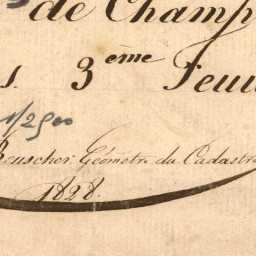 de Champ
s. 3ème Feui
1/2500
Reuscher Géomètre du Cadastre
1828.